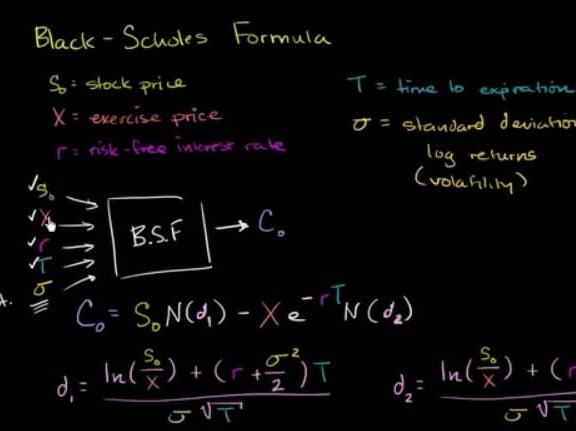 Black-Scholes Formula
S₀ = stock price
X = exercise price
r = risk-free interest rate
T = time to expiration
σ = standard deviation
log returns
(volatility)
✓S₀
✓X
✓r
✓T
σ
B.S.F
C₀
C₀ = S₀N(d₁) - Xe^-rT N(d₂)
d₁ = ln(S₀/X) + (r + σ²/2)T / σ√T
d₂ = ln(S₀/X) + (r / σ√T